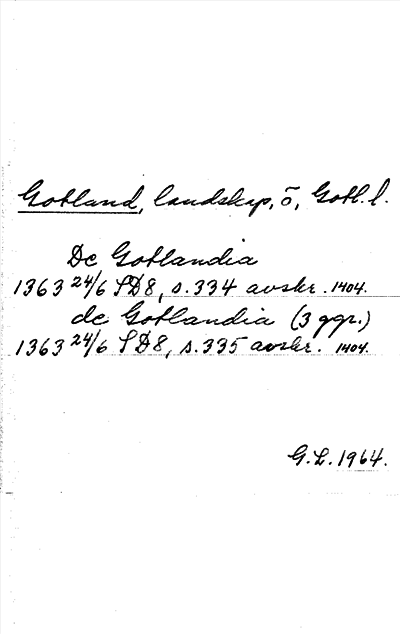 Gotland, landskap, ö, Gotl. l.
De Gotlandia
1363 24/6 SD8, s. 334 avskr. 1404.
de Gotlandia (3 ggr.)
1363 24/6 SD8, s. 335 avskr. 1404.
G.L. 1964.